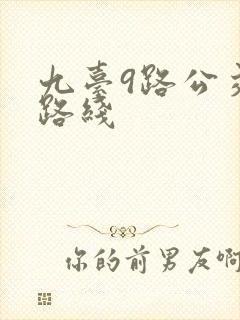 九臺9路公交
路綫
你的前男友啊